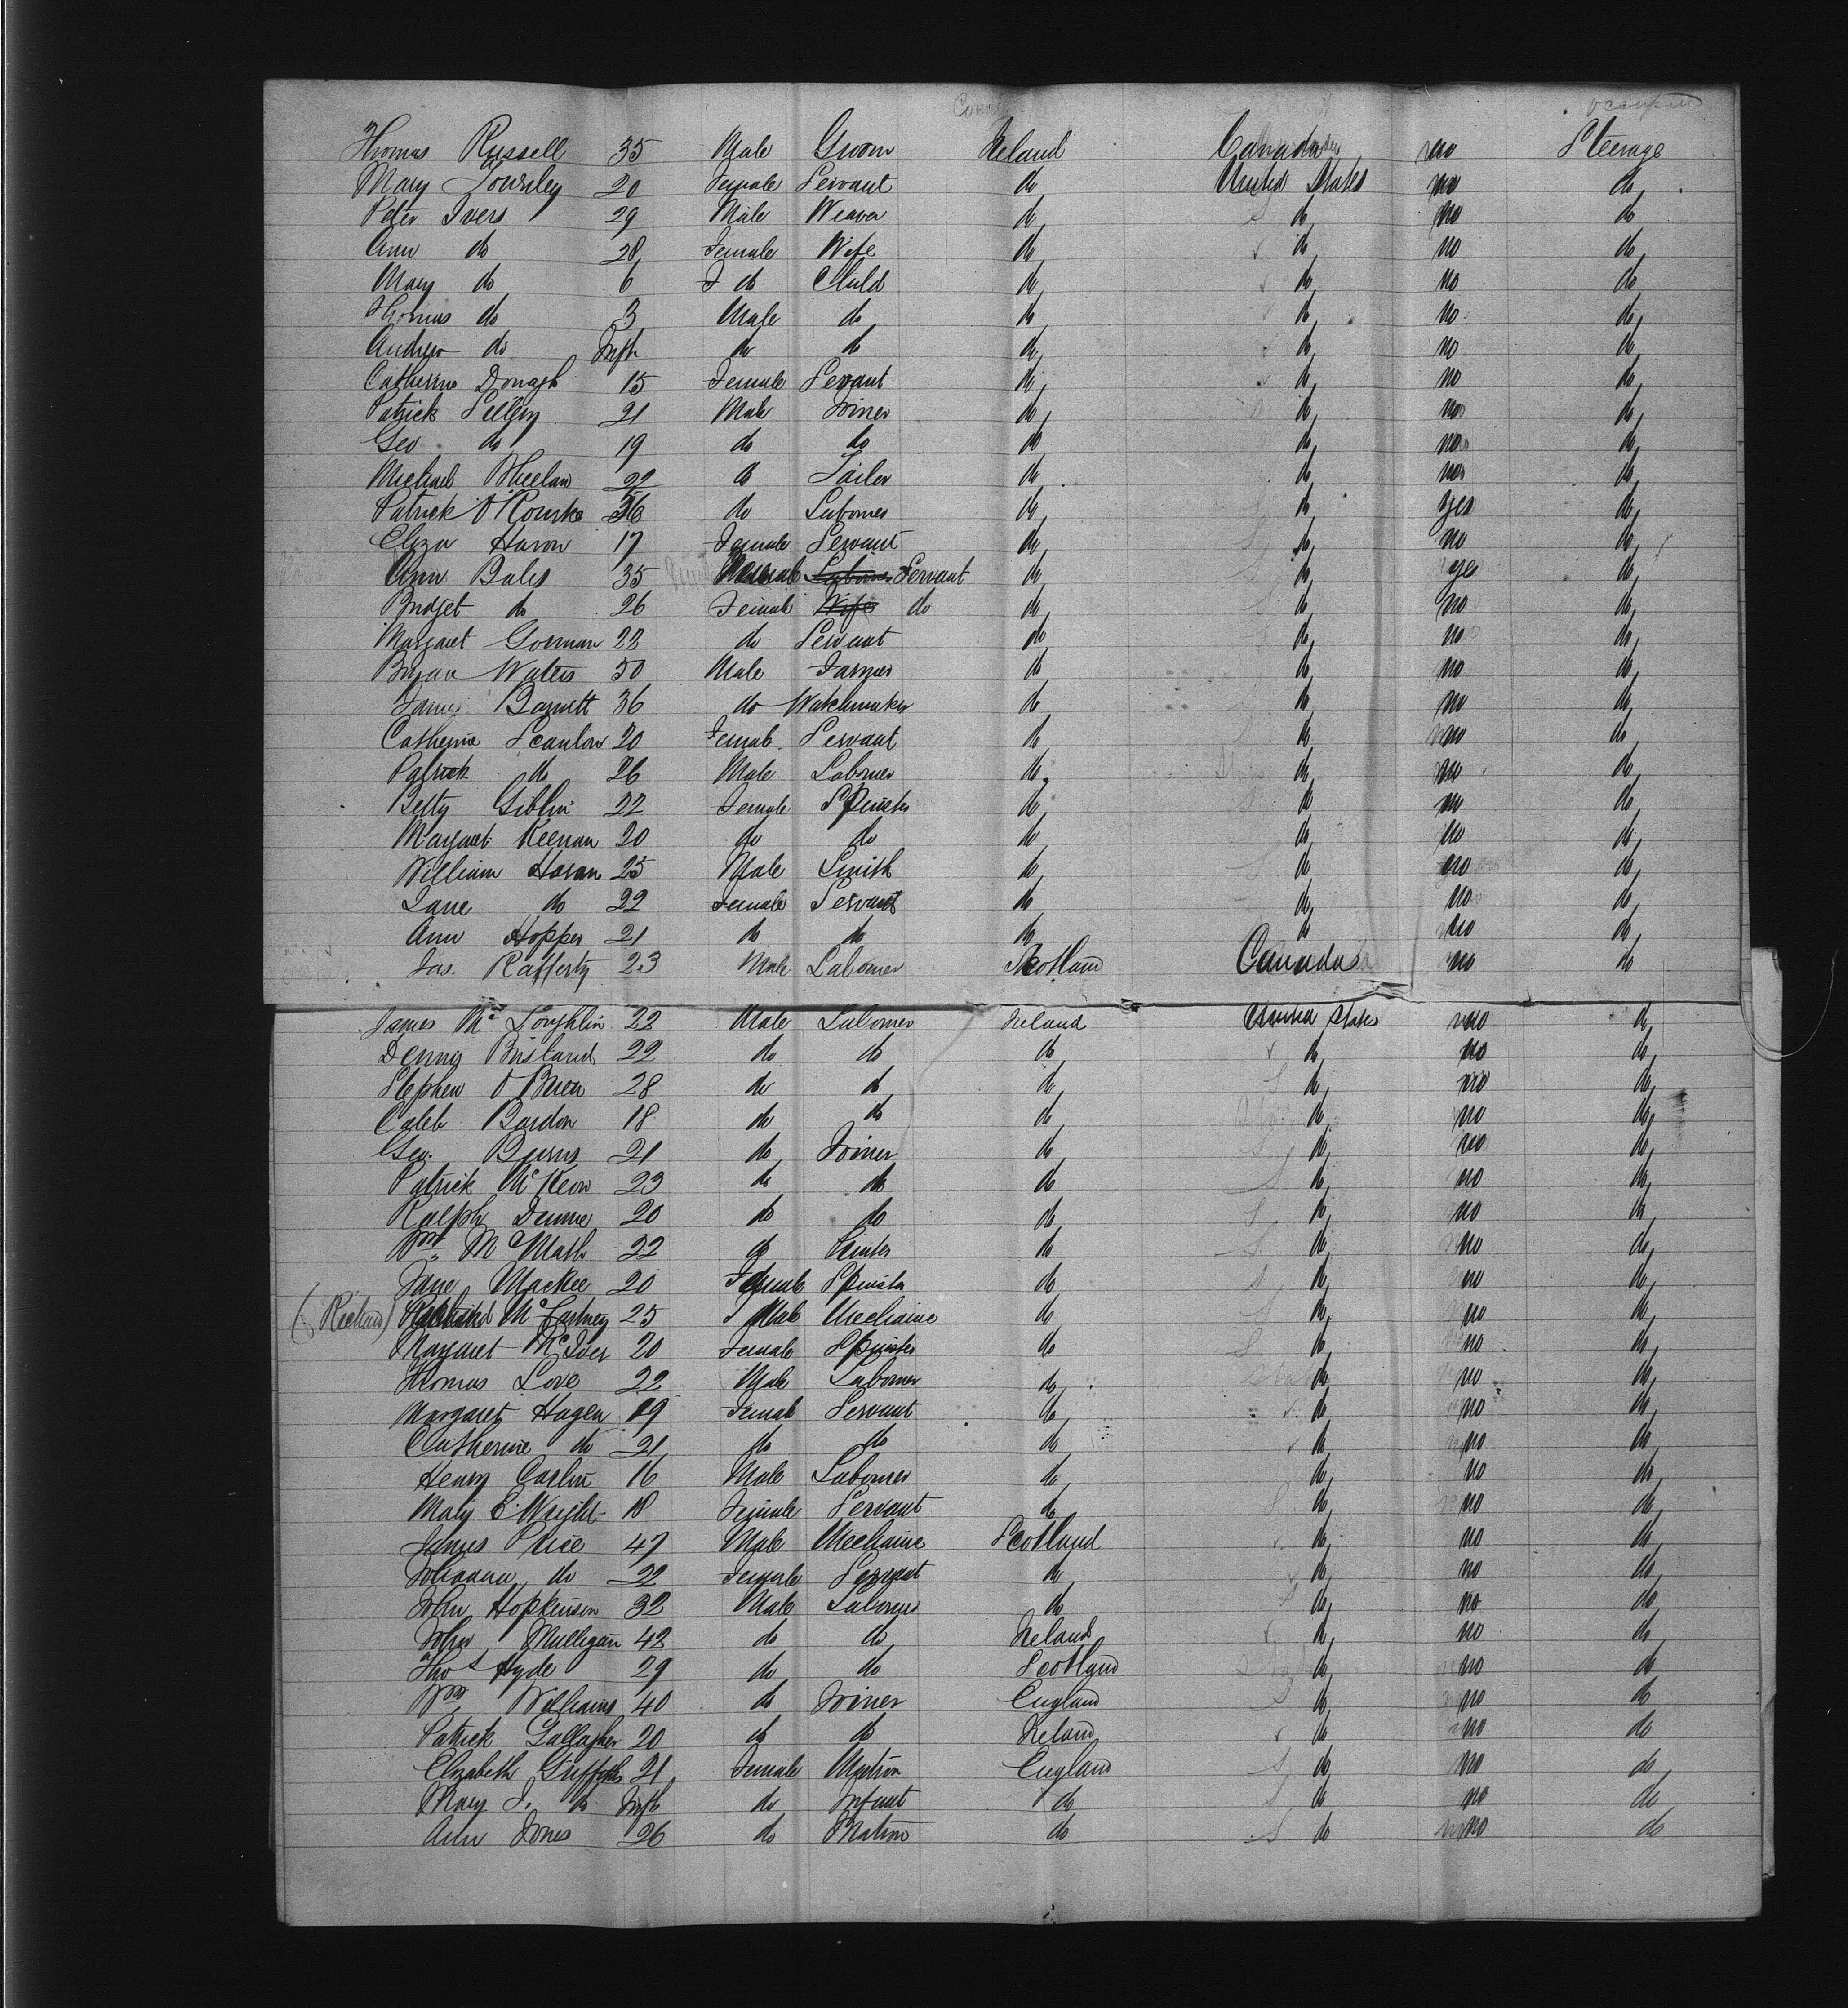 Thomas Russell 35 Male Groom Ireland Canada no Steerage
Mary Townley 20 Female Servant do United States no do
Peter Ivers 29 Male Weaver do do no do
Ann do 28 Female Wife do do no do
Mary do 6 F do Child do do no do
Thomas do 3 Male do do do no do
Andrew do Inft do do do do no do
Catherine Donagh 15 Female Servant do do no do
Patrick 21 Male Joiner do do no do
Geo do 19 do do do do no do
Michael Wheelan 22 do Tailor do do no do
Patrick O'Rourke 36 do Laborer do do yes do
Eliza Haron 17 Female Servant do do no do
Ann Bales 35 Laborer Servant do do yes do
Bridget do 26 Female Wife do do do no do
Margaret Gorman 22 do Servant do do no do
Bryan Waters 50 Male Farmer do do no do
James Barnett 36 do Watchmaker do do no do
Catherine Scanlon 20 Female Servant do do no do
Patrick do 26 Male Laborer do do no do
Betty Giblin 22 Female Spinster do do no do
Margaret Keenan 20 do do do do no do
William Haran 25 Male Smith do do no do
Jane do 22 Female Servant do do no do
Ann Hopper 21 do do do do no do
Jas. Rafferty 23 Male Laborer Scotland Canada no do
James McLoughlin 22 Male Laborer Ireland United States no do
Dennis Brisland 22 do do do do no do
Stephen O'Brien 28 do do do do no do
Caleb Bardon 18 do do do do no do
Geo. Burns 21 do Joiner do do no do
Patrick McKeon 23 do do do do no do
Ralph Dunne 20 do do do do no do
Wm McMath 22 do do do no do
Jane Mackee 20 Female Spinster do do no do
(Richard) Richard McCartney 25 Male Mechanic do do no do
Margaret McIver 20 Female Spinster do do no do
Thomas Love 22 Male Laborer do do no do
Margaret Hagen 19 Female Servant do do no do
Catherine do 21 do do do do no do
Henry Carlin 16 Male Laborer do do no do
Mary E Wright 18 Female Servant do do no do
James Price 47 Male Mechanic Scotland do no do
Johanna do 22 Female Servant do do no do
John Hopkinson 32 Male Laborer do do no do
John Mulligan 42 do do Ireland do no do
Thos Hyde 29 do do Scotland do no do
Wm Williams 40 do Joiner England do no do
Patrick Gallagher 20 do do Ireland do no do
Elizabeth Griffiths 21 Female Matron England do no do
Mary J. do Inft do Infant do do no do
Ann Jones 26 do Matron do do no do